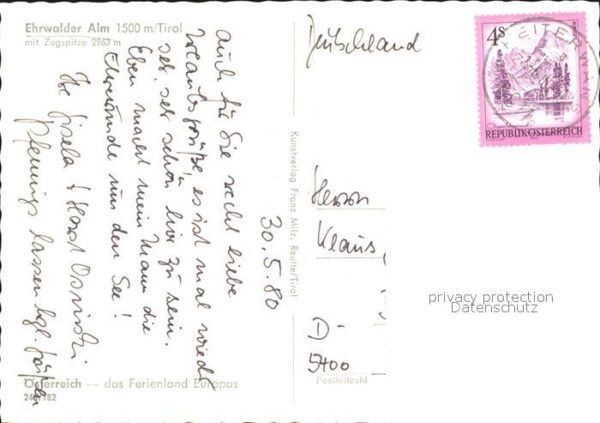 Ehrwalder Alm 1500 m/Tirol
mit Zugspitze 2963 m
30.5.80
Auch für Sie recht liebe
Urlaubsgrüße, es ist mal wieder
sehr sehr schön hier zu sein.
Eben macht mein Mann die
Ehrenrunde um den See!
Ihre Gisela + Horst
lassen hzl. grüßen
Österreich — das Ferienland Europas
240/182
Kunstverlag Franz Milz, Reutte/Tirol
Deutschland
4S
REPUBLIK ÖSTERREICH
HEITERWANG
Herrn
Klaus
D-
5400
Postleitzahl
privacy protection
Datenschutz